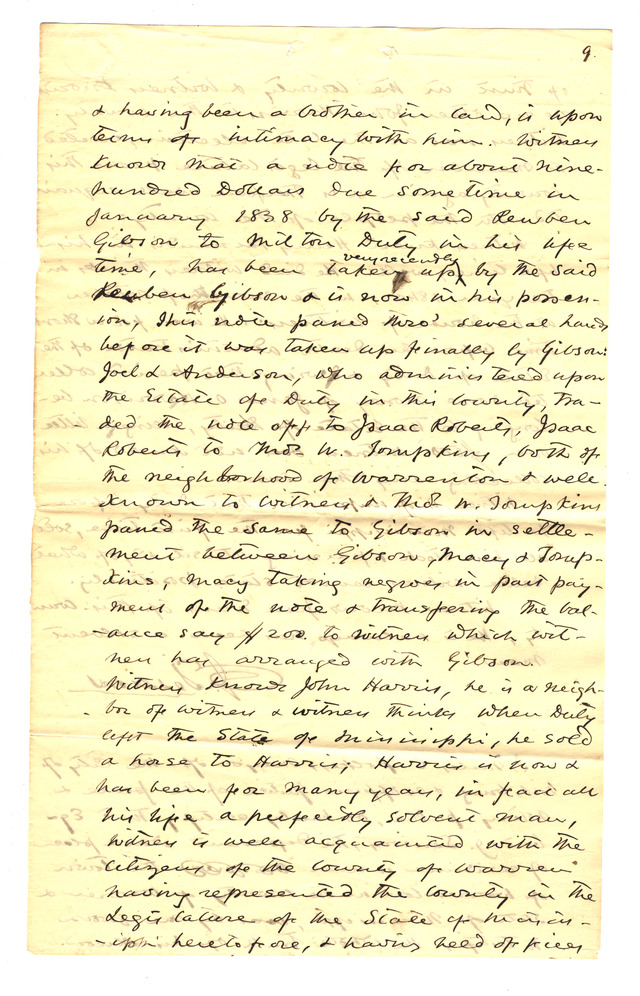 9.
& having been a brother in law, is upon
terms of intimacy with him. Witness
knows that a note for about nine-
hundred Dollars due sometime in
January 1838 by the said Reuben
Gibson to Milton Duty in his life
very recently
time, has been taken up by the said
Reuben Gibson & is now in his possess-
ion, This note passed thro' several hands
before it was taken up finally by Gibson:
Joel & Anderson, who administered upon
the Estate of Duty in this County, tra-
-ded the note off to Isaac Roberts, Isaac
Roberts to Thos. W. Tompkins, both of
the neighborhood of Warrenton & well
known to witness & Thos. W. Tompkins
passed the same to Gibson in settle-
ment between Gibson, Macy & Tomp-
kins, Macy taking negroes in part pay-
ment of the note & transfering the bal-
-ance say $200. to witness which wit-
ness has arranged with Gibson.
Witness knows John Harris, he is a neigh-
-bor of witness & witness thinks when Duty
left the State of Mississippi, he sold
a horse to Harris; Harris is now &
has been for many years, in fact all
his life a perfectly solvent man,
Witness is well acquainted with the
Citizens of the County of Warren
having represented the County in the
Legislature of the State of Missis-
-ippi heretofore, & having held offices